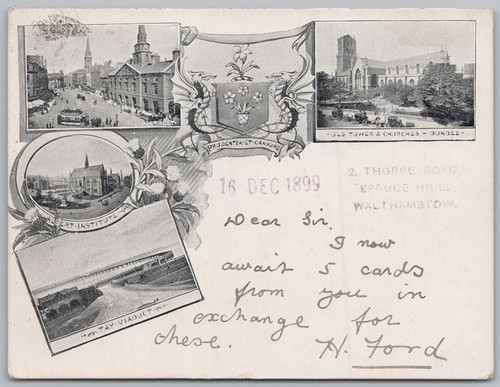 PRUDENTIA·ET·CANDORE
-OLD TOWER & CHURCHES - DUNDEE-
ERT·INSTITUTE
TAY VIADUCT
16 DEC 1899
2. THORPE ROAD.
SPRUCE HILL.
WALTHAMSTOW.
Dear Sir,
I now
await 5 cards
from you in
exchange for
these.
H. Ford